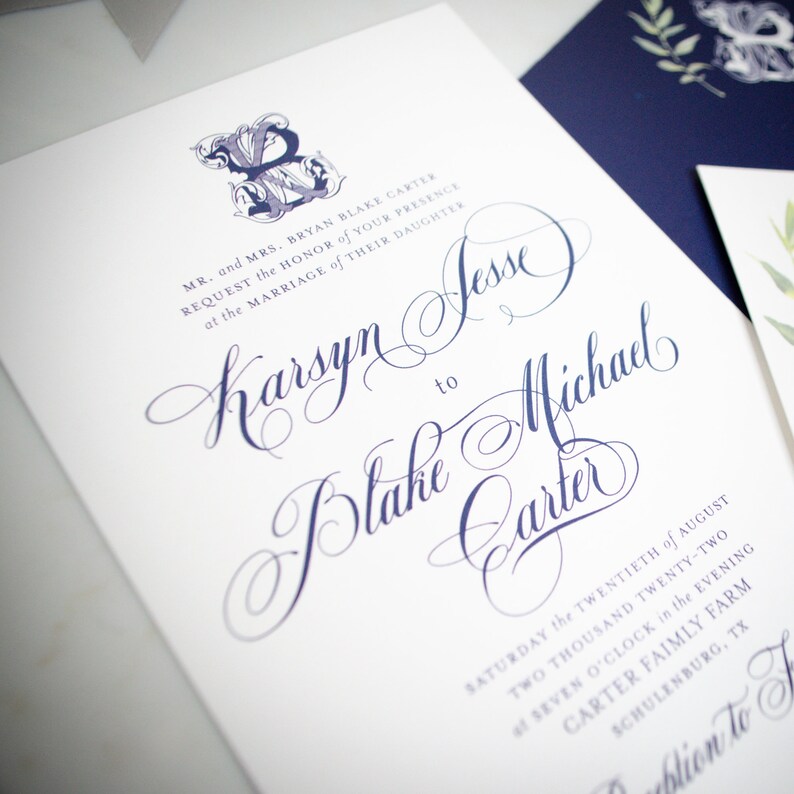 MR. and MRS. BRYAN BLAKE CARTER
REQUEST the HONOR of YOUR PRESENCE
at the MARRIAGE of THEIR DAUGHTER
Karsyn Jesse
to
Blake Michael
Carter
SATURDAY the TWENTIETH of AUGUST
TWO THOUSAND TWENTY-TWO
at SEVEN O'CLOCK in the EVENING
CARTER FAIMLY FARM
SCHULENBURG, TX
Reception to